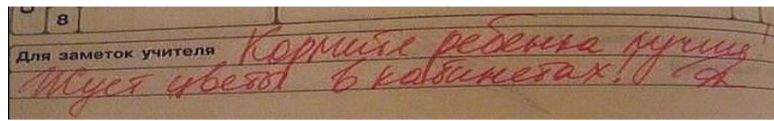 8
Для заметок учителя Кормите ребенка лучше!
Жует цветы в кабинетах!